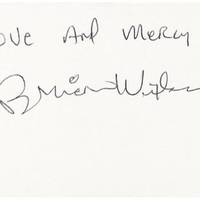 ove And Mercy
Brian Wilson